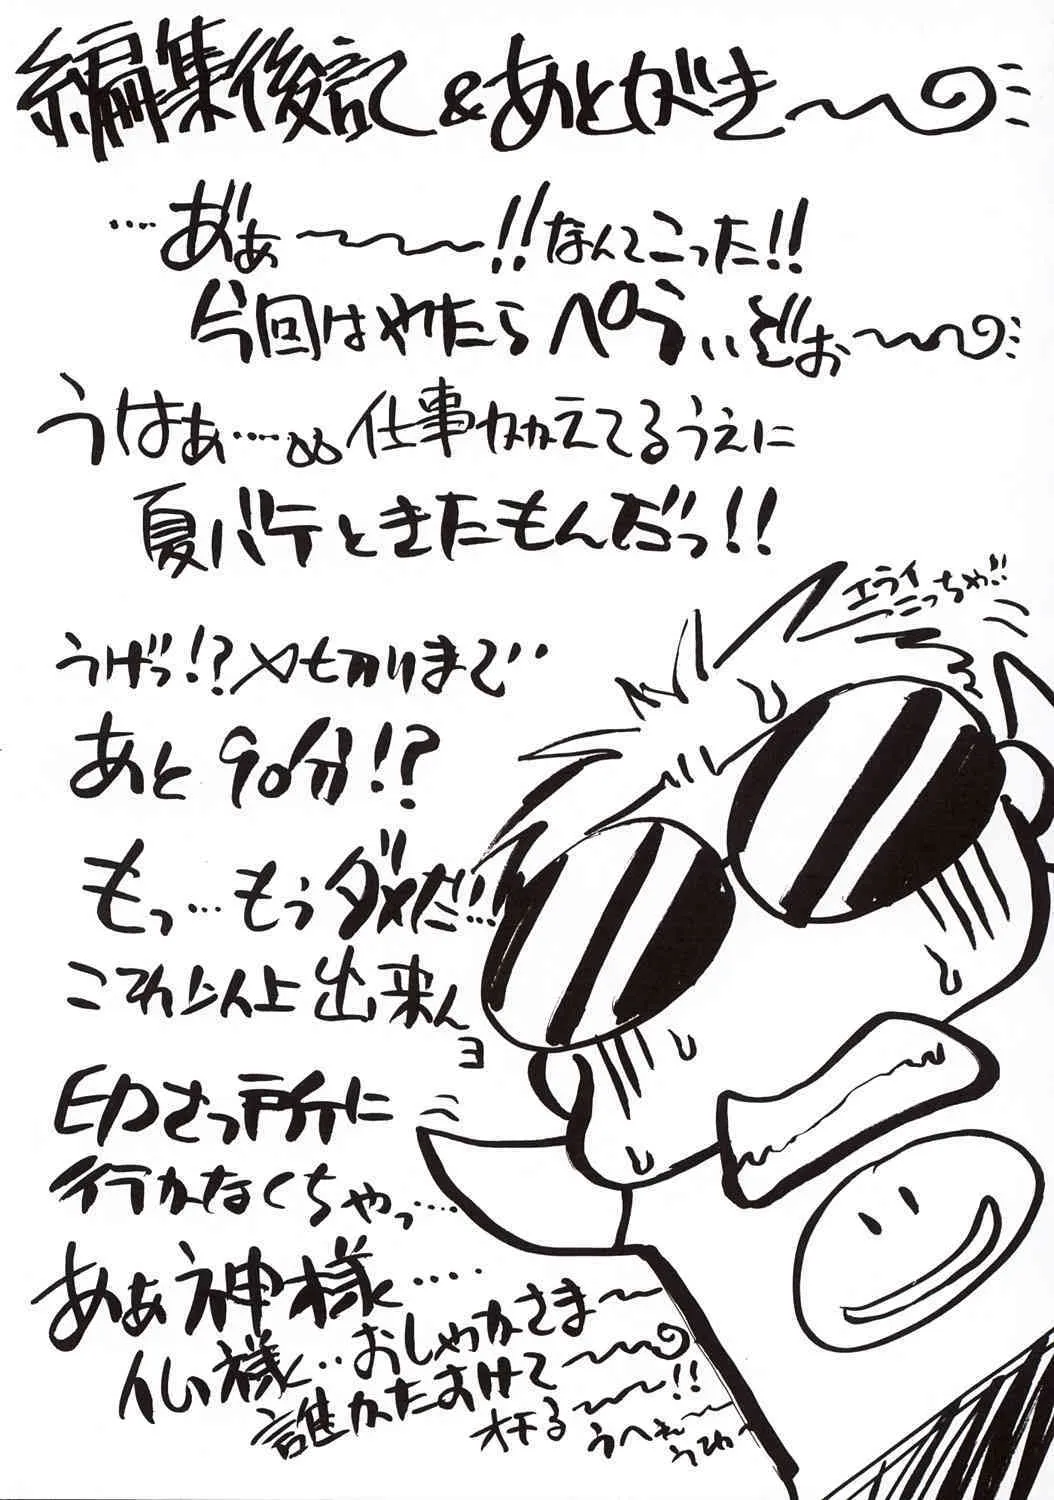 編集後記&あとがき〜
‥‥あ゛ぁ〜〜〜!!なんてこった!!
今回はやたらペラいぞぉ〜〜
うはぁ‥‥。。仕事かかえてるうえに
夏バテときたもんだっ!!
エライ
こっちゃ!!
うげっ!?〆切りまで‥
あと90分!?
もっ…もうダメだ…
これ以上出来ん
ヨ
印さっ所に
行かなくちゃっ‥‥
あぁ神様‥‥
仏様‥おしゃかさま〜
誰かたすけて〜〜
オチる〜〜!!
うへぇ〜
うひゃ〜